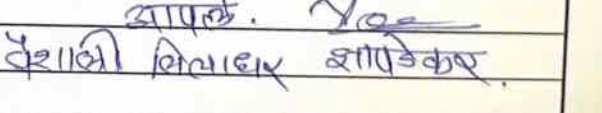 आपले.
वैशाली विलाधर शापडेकर.